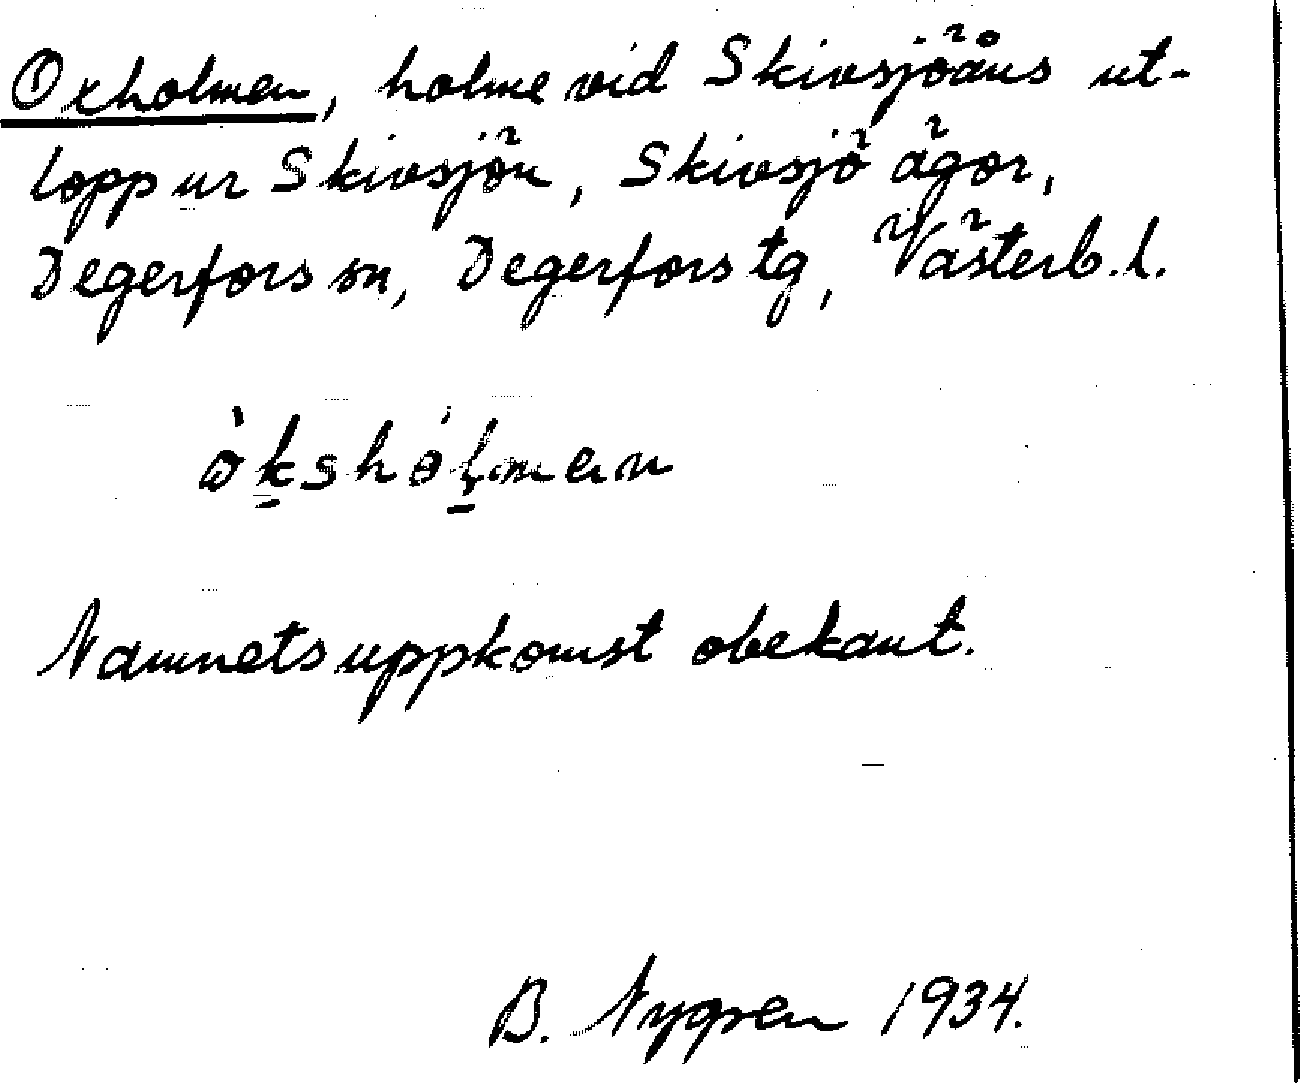 Oxholmen, holme vid Skivsjöåns ut-
lopp ur Skivsjön, Skivsjö ägor,
Degerfors sn, Degerfors tg, Västerb. l.
òk̠shóḷ̠men
Namnets uppkomst obekant.
B. Nygren 1934.